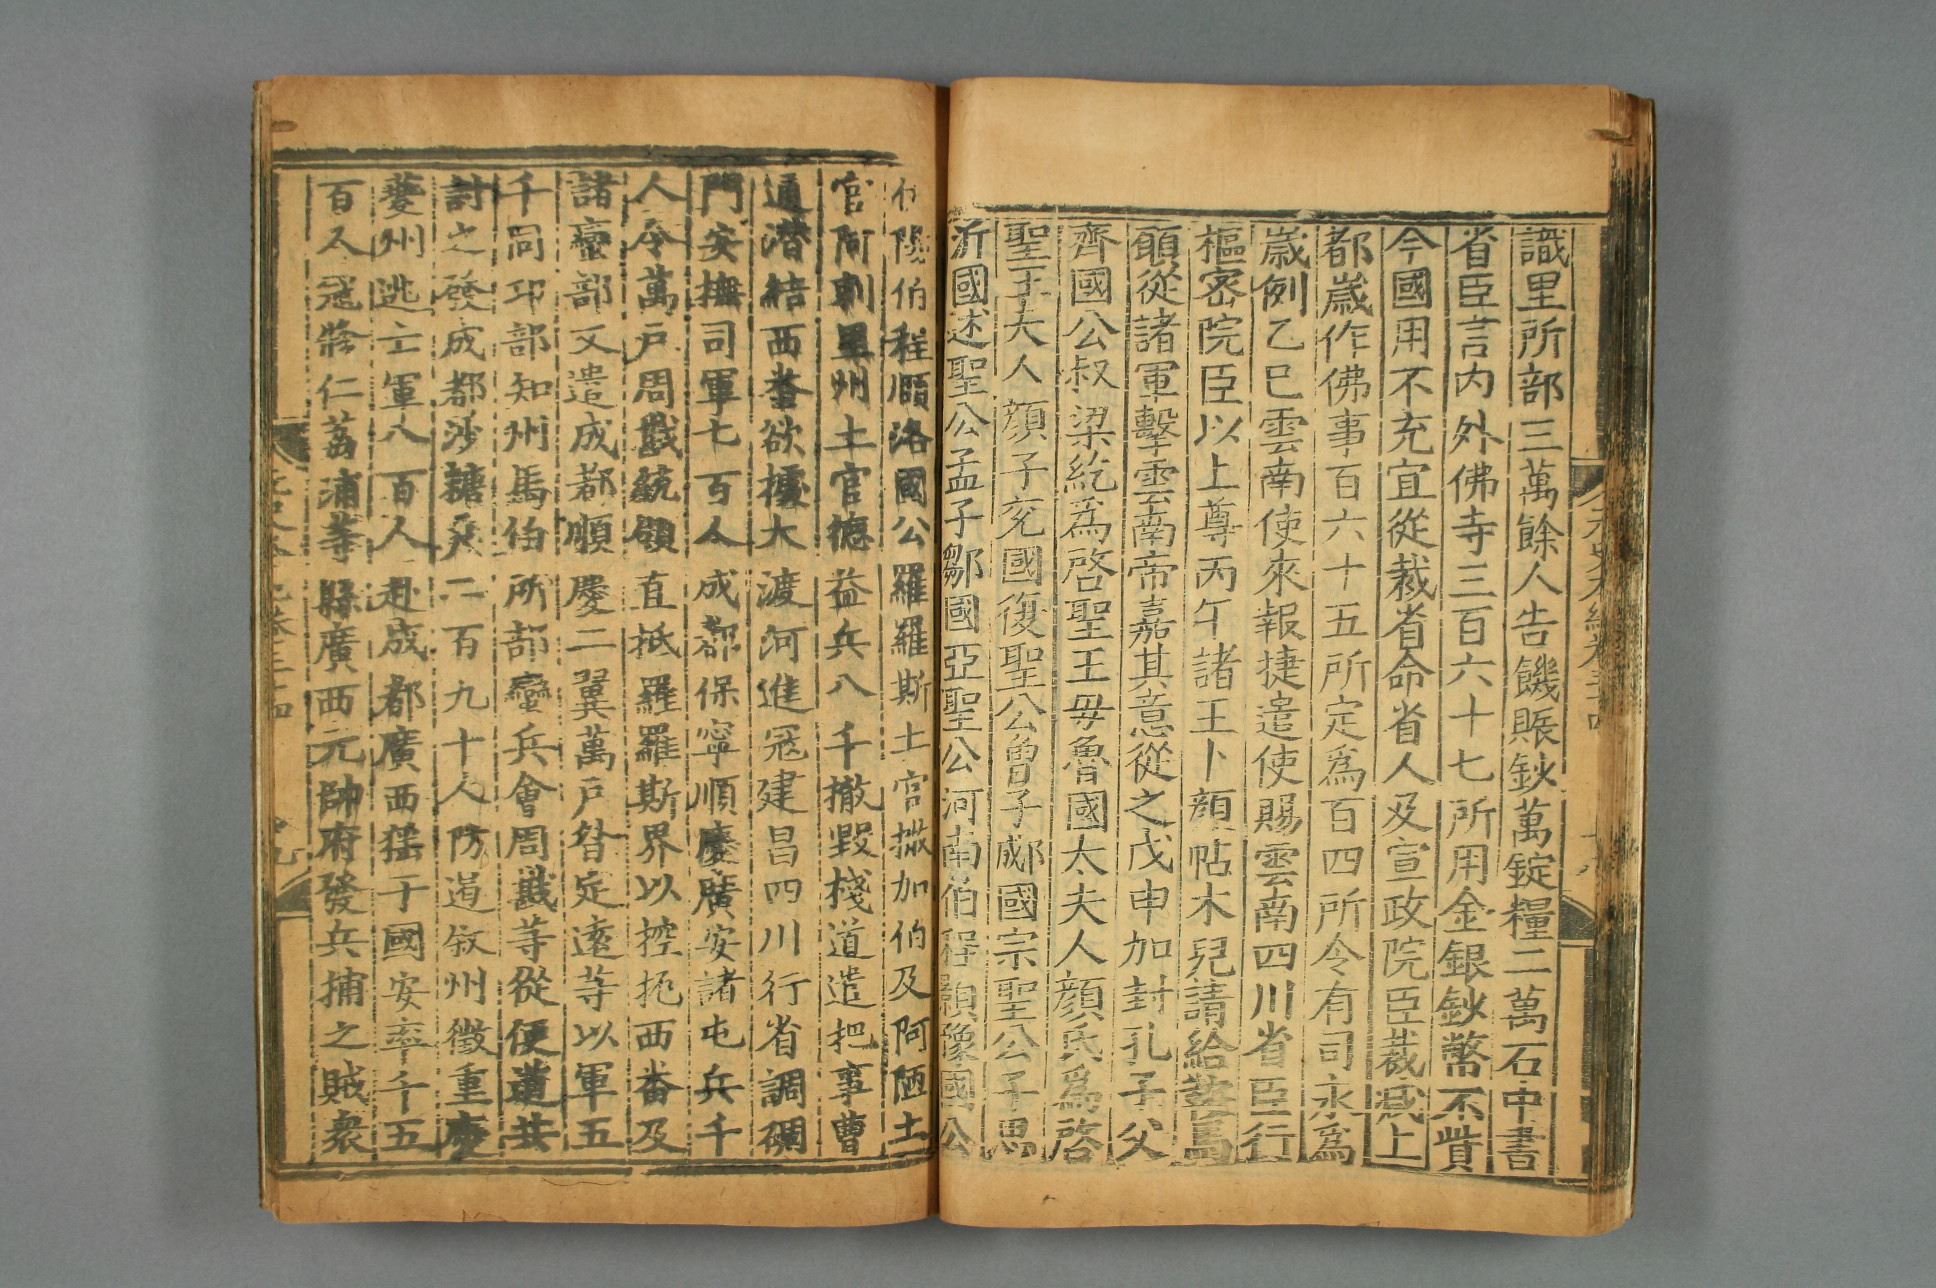 識里所部三萬餘人告饑賑鈔萬錠糧二萬石中書
省臣言内外佛寺三百六十七所用金銀鈔幣不貲
今國用不充宜從裁省命省人及宣政院臣裁减上
都歲作佛事百六十五所定爲百四所令有司永爲
歲例乙巳雲南使來報捷遣使賜雲南四川省臣行
樞密院臣以上尊丙午諸王卜顔帖木兒請給鞍馬
願從諸軍擊雲南帝嘉其意從之戊申加封孔子父
齊國公叔梁紇爲啓聖王母魯國太夫人顔氏爲啓
聖王夫人顔子兖國復聖公曾子郕國宗聖公子思
沂國述聖公孟子鄒國亞聖公河南伯程顥豫國公
伊陽伯程頤洛國公羅羅斯土官撒加伯及阿陋土
官阿剌里州土官德益兵八千撤毀棧道遣把事曹
通潛結西番欲據大渡河進冦建昌四川行省調碉
門安撫司軍七百人成都保寧順慶廣安諸屯兵千
人令萬户周戡統領直抵羅羅斯界以控扼西番及
諸蠻部又遣成都順慶二翼萬户昝定遠等以軍五
千同邛部知州馬伯所部蠻兵會周戡等從便道共
討之發成都沙糖兵二百九十人防遏叙州徵重慶
夔州逃亡軍八百人赴成都廣西猺于國安率千五
百人冦脩仁荔浦等縣廣西元帥府發兵捕之賊衆